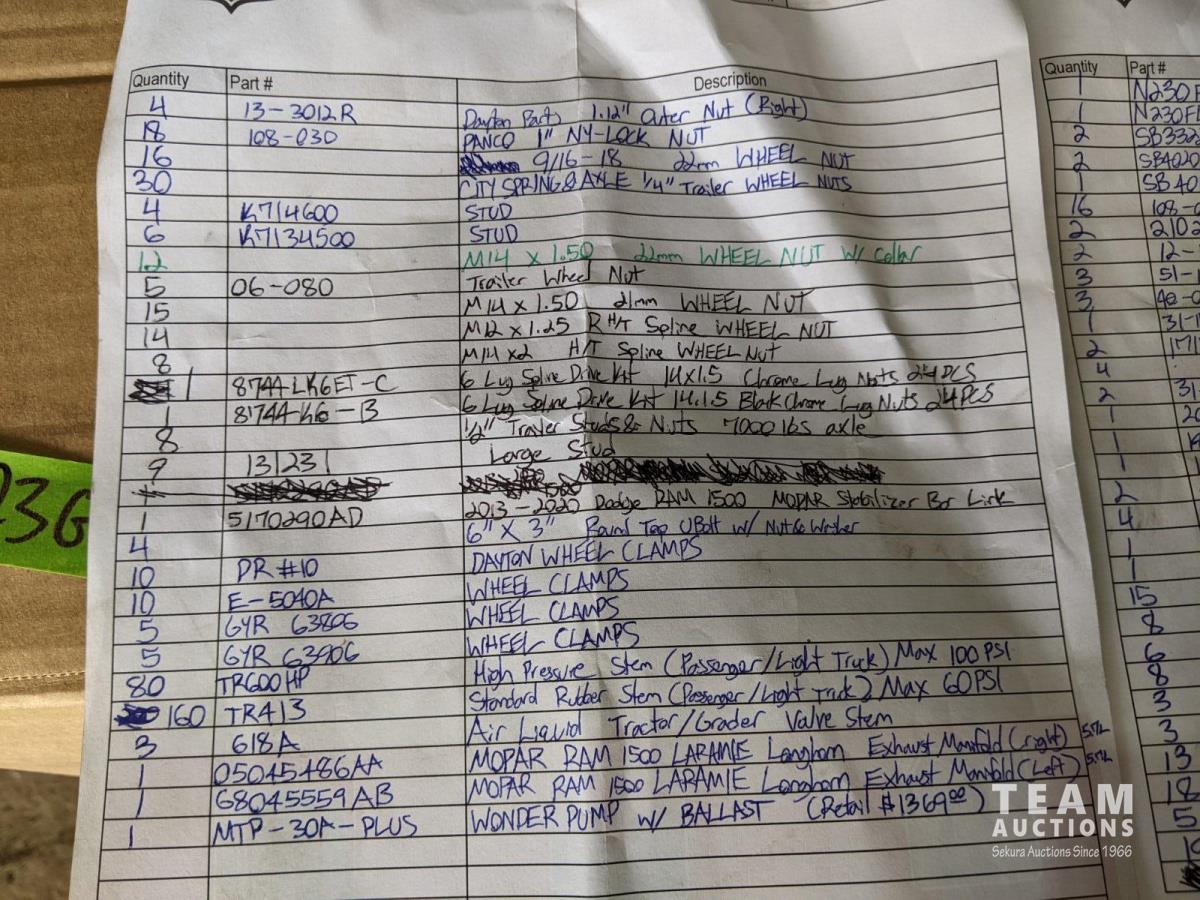 Quantity Part # Description
4 13-3012R Dayton Parts 1.12" Outer Nut (Right)
18 108-030 PANCO 1" NY-LOCK NUT
16 9/16-18 22mm WHEEL NUT
30 CITY SPRING & AXLE 1/4" Trailer WHEEL NUTS
4 K714600 STUD
6 K7134500 STUD
12 M14 X 1.50 22mm WHEEL NUT W/ Collar
5 06-080 Trailer Wheel Nut
15 M14 x 1.50 21mm WHEEL NUT
14 M12 x 1.25 R H/T Spline WHEEL NUT
8 M14 x2 H/T Spline WHEEL NUT
1 8744-LK6ET-C 6 Lug Spline Drive Kit 14x1.5 Chrome Lug Nuts 24 PCS
1 8744-K6-B 6 Lug Spline Drive Kit 14.1.5 Black Chrome Lug Nuts 24 PCS
8 1/2" Trailer Studs & Nuts 7000 lbs axle
9 131231 Large Stud
1 5170290AD 2013-2020 Dodge RAM 1500 MOPAR Stabilizer Bar Link
4 6" X 3" Round Top UBolt w/ Nut &
10 DR #10 DAYTON WHEEL CLAMPS
10 E-5040A WHEEL CLAMPS
5 GYR 6380G WHEEL CLAMPS
5 GYR 6390G WHEEL CLAMPS
80 TR600HP High Pressure Stem (Passenger/Light Truck) Max 100 PSI
160 TR413 Standard Rubber Stem (Passenger/Light Truck) Max 60 PSI
3 618A Air Liquid Tractor/Grader Valve Stem
1 05045486AA MOPAR RAM 1500 LARAMIE Longhorn Exhaust Manifold (right) 5.7L
1 68045559AB MOPAR RAM 1500 LARAMIE Longhorn Exhaust Manifold (Left) 5.7L
1 MTP-30A-PLUS WONDER PUMP W/ BALLAST (Retail $1369.00)
Quantity Part #
1 N230F
1 N230F
2
2 SB4020
1 SB40
16 108-0
2 2102
2 12-
3 51-1
3 40-0
1 31-
2
4
2 31
1
1
1
2
4
1
1
15
8
6
8
3
3
13
18
5
TEAM
AUCTIONS
Sekura Auctions Since 1966